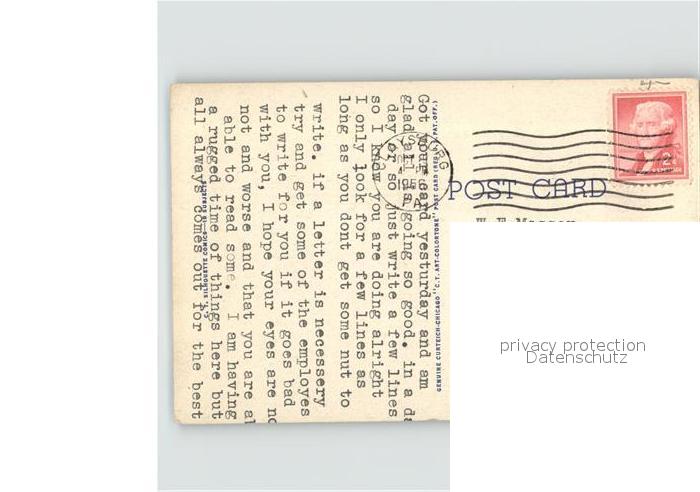 Got your card yesturday and am
glad all is going so good. in a
day or so just write a few lines
so I know you are doing alright
I only look for a few lines as
long as you dont get some nut to
write. if a letter is necessery
try and get some of the employes
to write for you if it goes bad
with you, I hope your eyes are
not and worse and that you are
able to read some. I am having
a rugged time of things here but
all always comes out for the best
POST CARD
GENUINE CURTEICH-CHICAGO "C.T. ART-COLORTONE" POST CARD (REG. U.S. PAT. OFF.)
SILHOUETTE COMICS
2¢
PA.
privacy protection
Datenschutz